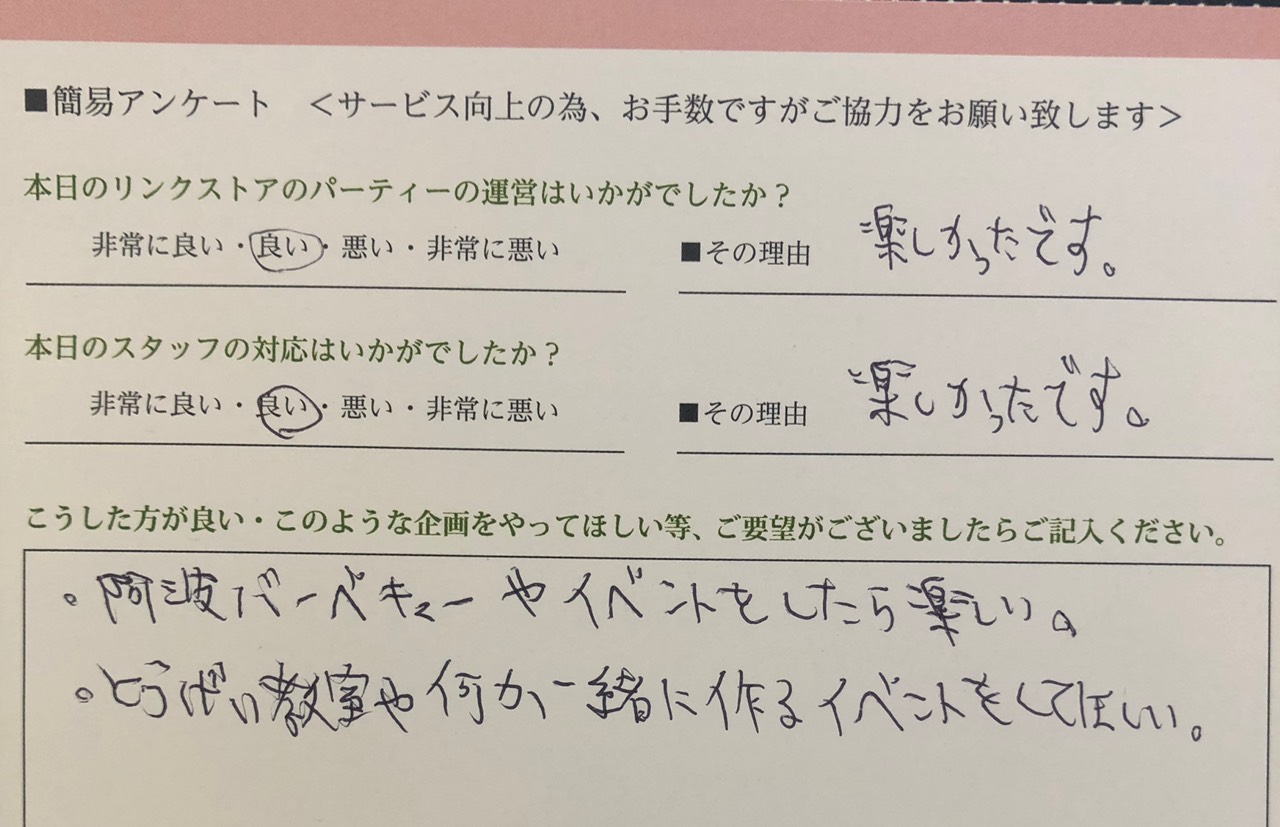 ■簡易アンケート ＜サービス向上の為、お手数ですがご協力をお願い致します＞
本日のリンクストアのパーティーの運営はいかがでしたか？
非常に良い・良い・悪い・非常に悪い ■その理由 楽しかったです。
本日のスタッフの対応はいかがでしたか？
非常に良い・良い・悪い・非常に悪い ■その理由 楽しかったです。
こうした方が良い・このような企画をやってほしい等、ご要望がございましたらご記入ください。
。阿波バーベキューやイベントをしたら楽しい。
。とうげい教室や何か一緒に作るイベントをしてほしい。